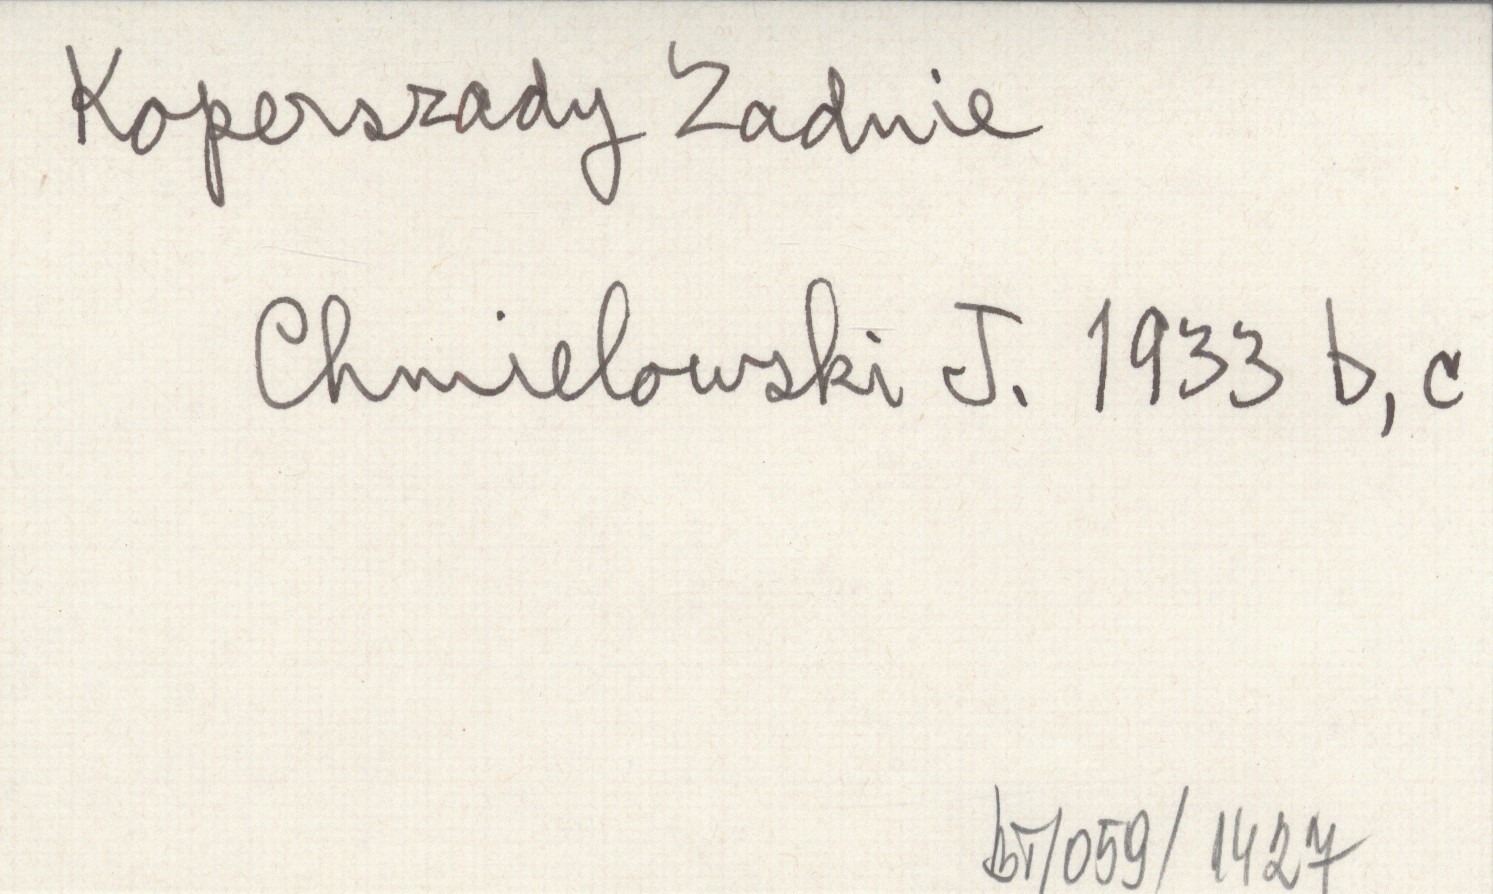 Koperszady Zadnie
Chmielowski J. 1933 b, c
bT/059/1427